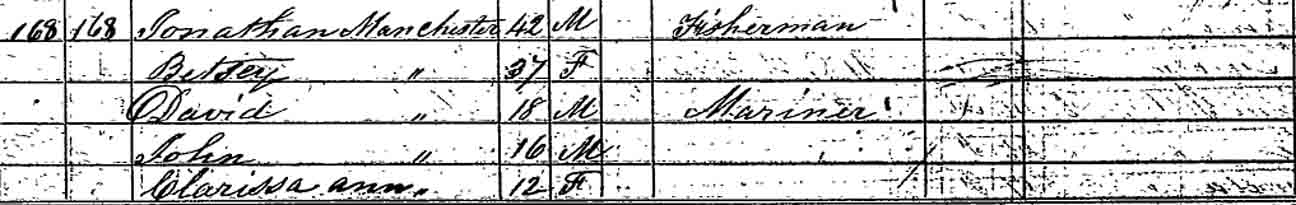 168 168 Jonathan Manchester 42 M Fisherman
Betsey " 37 F
David " 18 M Mariner
John " 16 M
Clarissa ann " 12 F